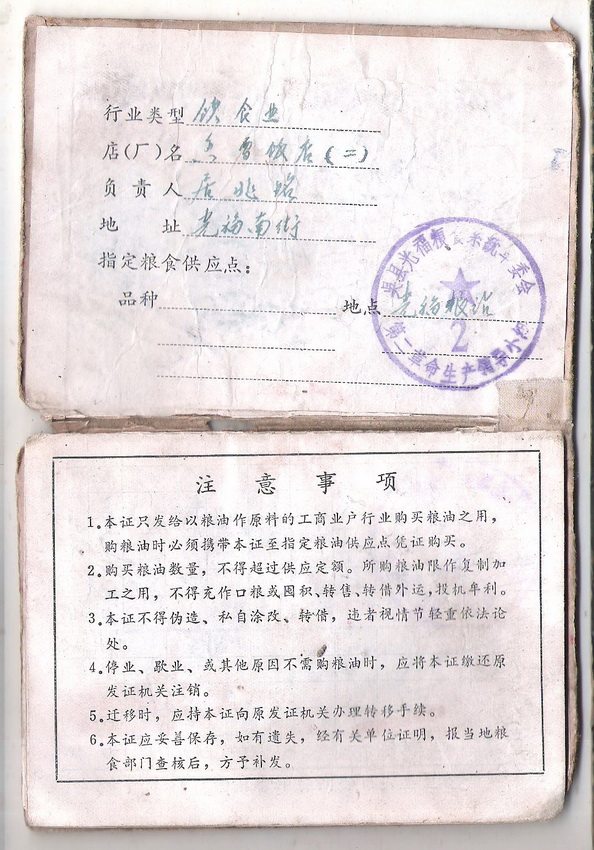 行业类型 饮食业
店(厂)名 香雪饭店(二)
负责人 居兆
地 址 光福南街
指定粮食供应点:
品种 地点 光福粮站
吴县光福粮 委会
2
第二 革命生产领导小组
注 意 事 项
1。本证只发给以粮油作原料的工商业户行业购买粮油之用,
购粮油时必须携带本证至指定粮油供应点凭证购买。
2。购买粮油数量,不得超过供应定额。所购粮油限作复制加
工之用,不得充作口粮或囤积、转售、转借外运,投机牟利。
3。本证不得伪造、私自涂改、转借,违者视情节轻重依法论
处。
4。停业、歇业、或其他原因不需购粮油时,应将本证缴还原
发证机关注销。
5。迁移时,应持本证向原发证机关办理转移手续。
6。本证应妥善保存,如有遗失,经有关单位证明,报当地粮
食部门查核后,方予补发。